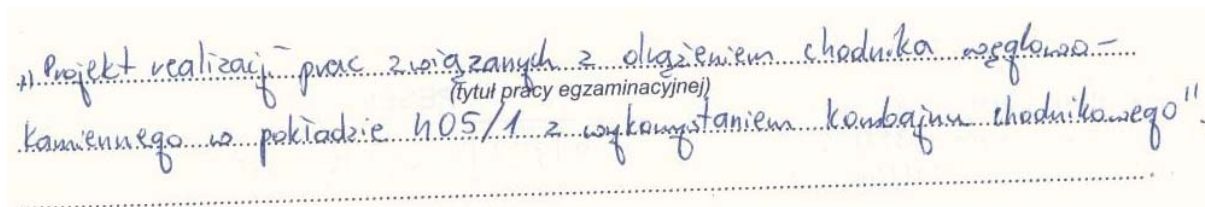 „Projekt realizacji prac związanych z drążeniem chodnika węglowo-
(tytuł pracy egzaminacyjnej)
kamiennego w pokładzie 405/1 z wykorzystaniem kombajnu chodnikowego".